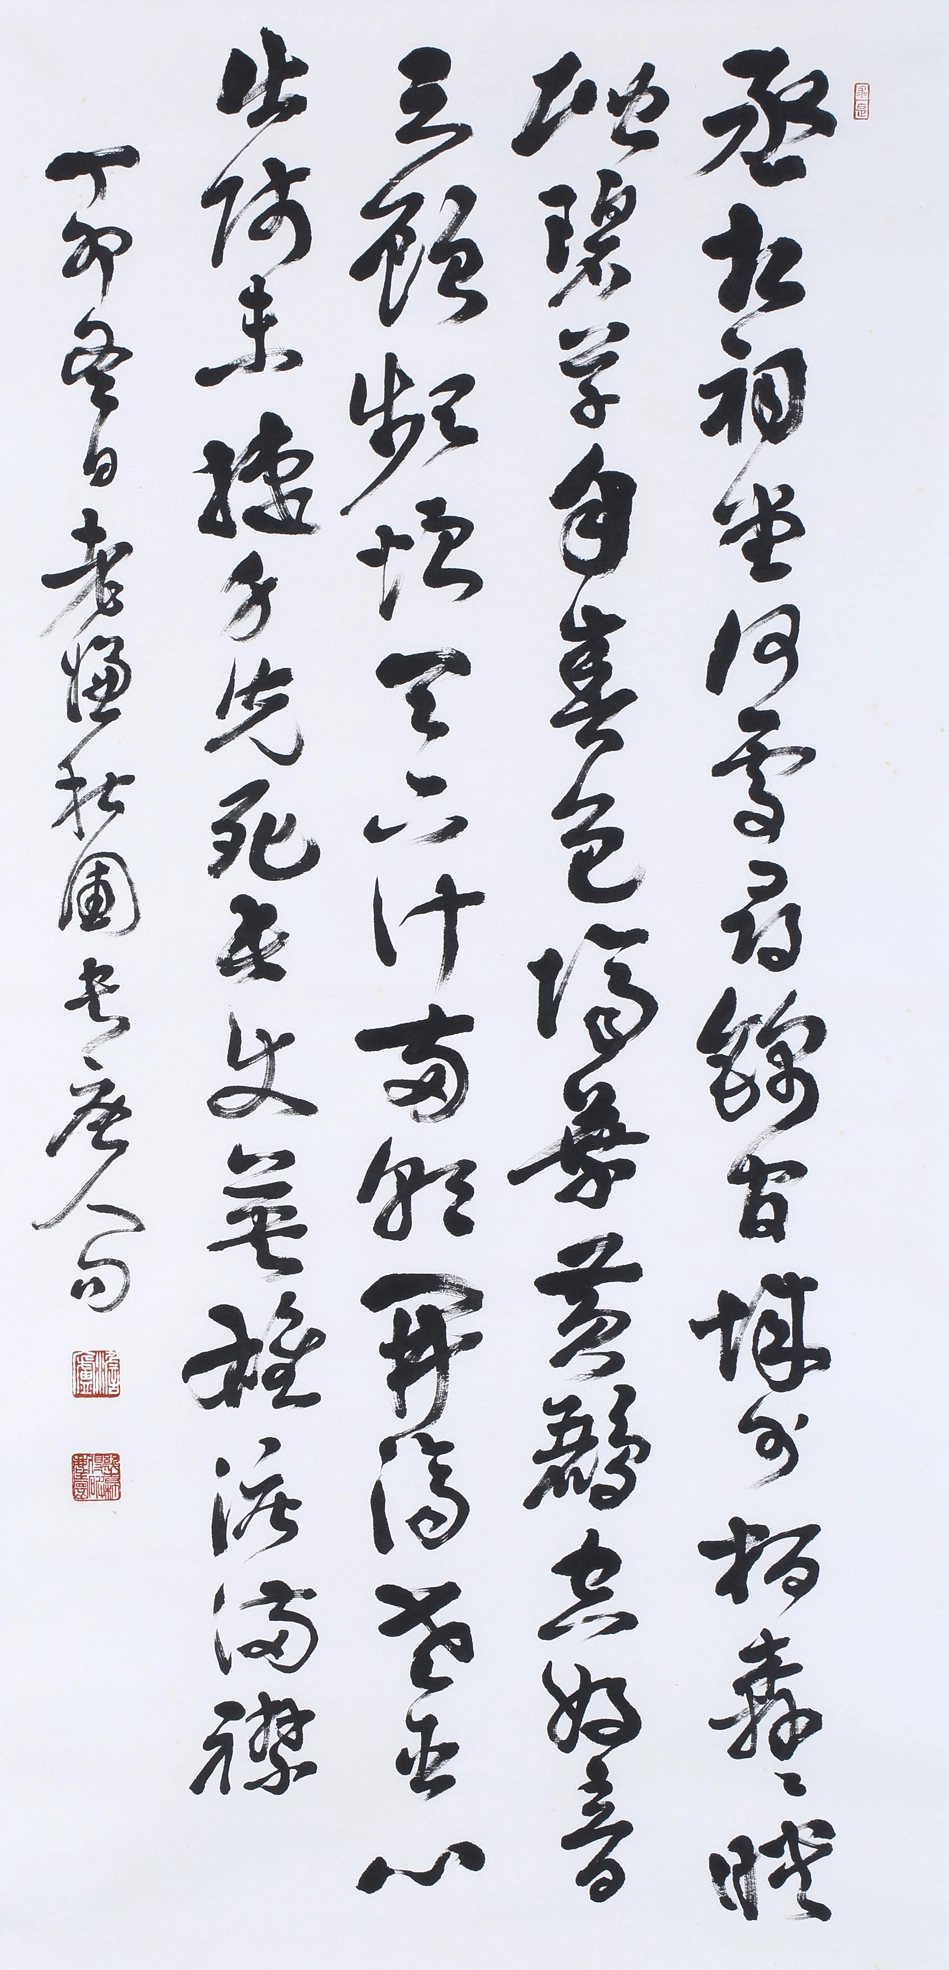 丞相祠堂何處尋錦官城外柏森々映
階碧草自春色隔葉黃鸝空好音
三顧頻煩天下計兩朝開濟老臣心
出師未捷身先死長使英雄淚滿襟
丁卯冬日老書唐人句